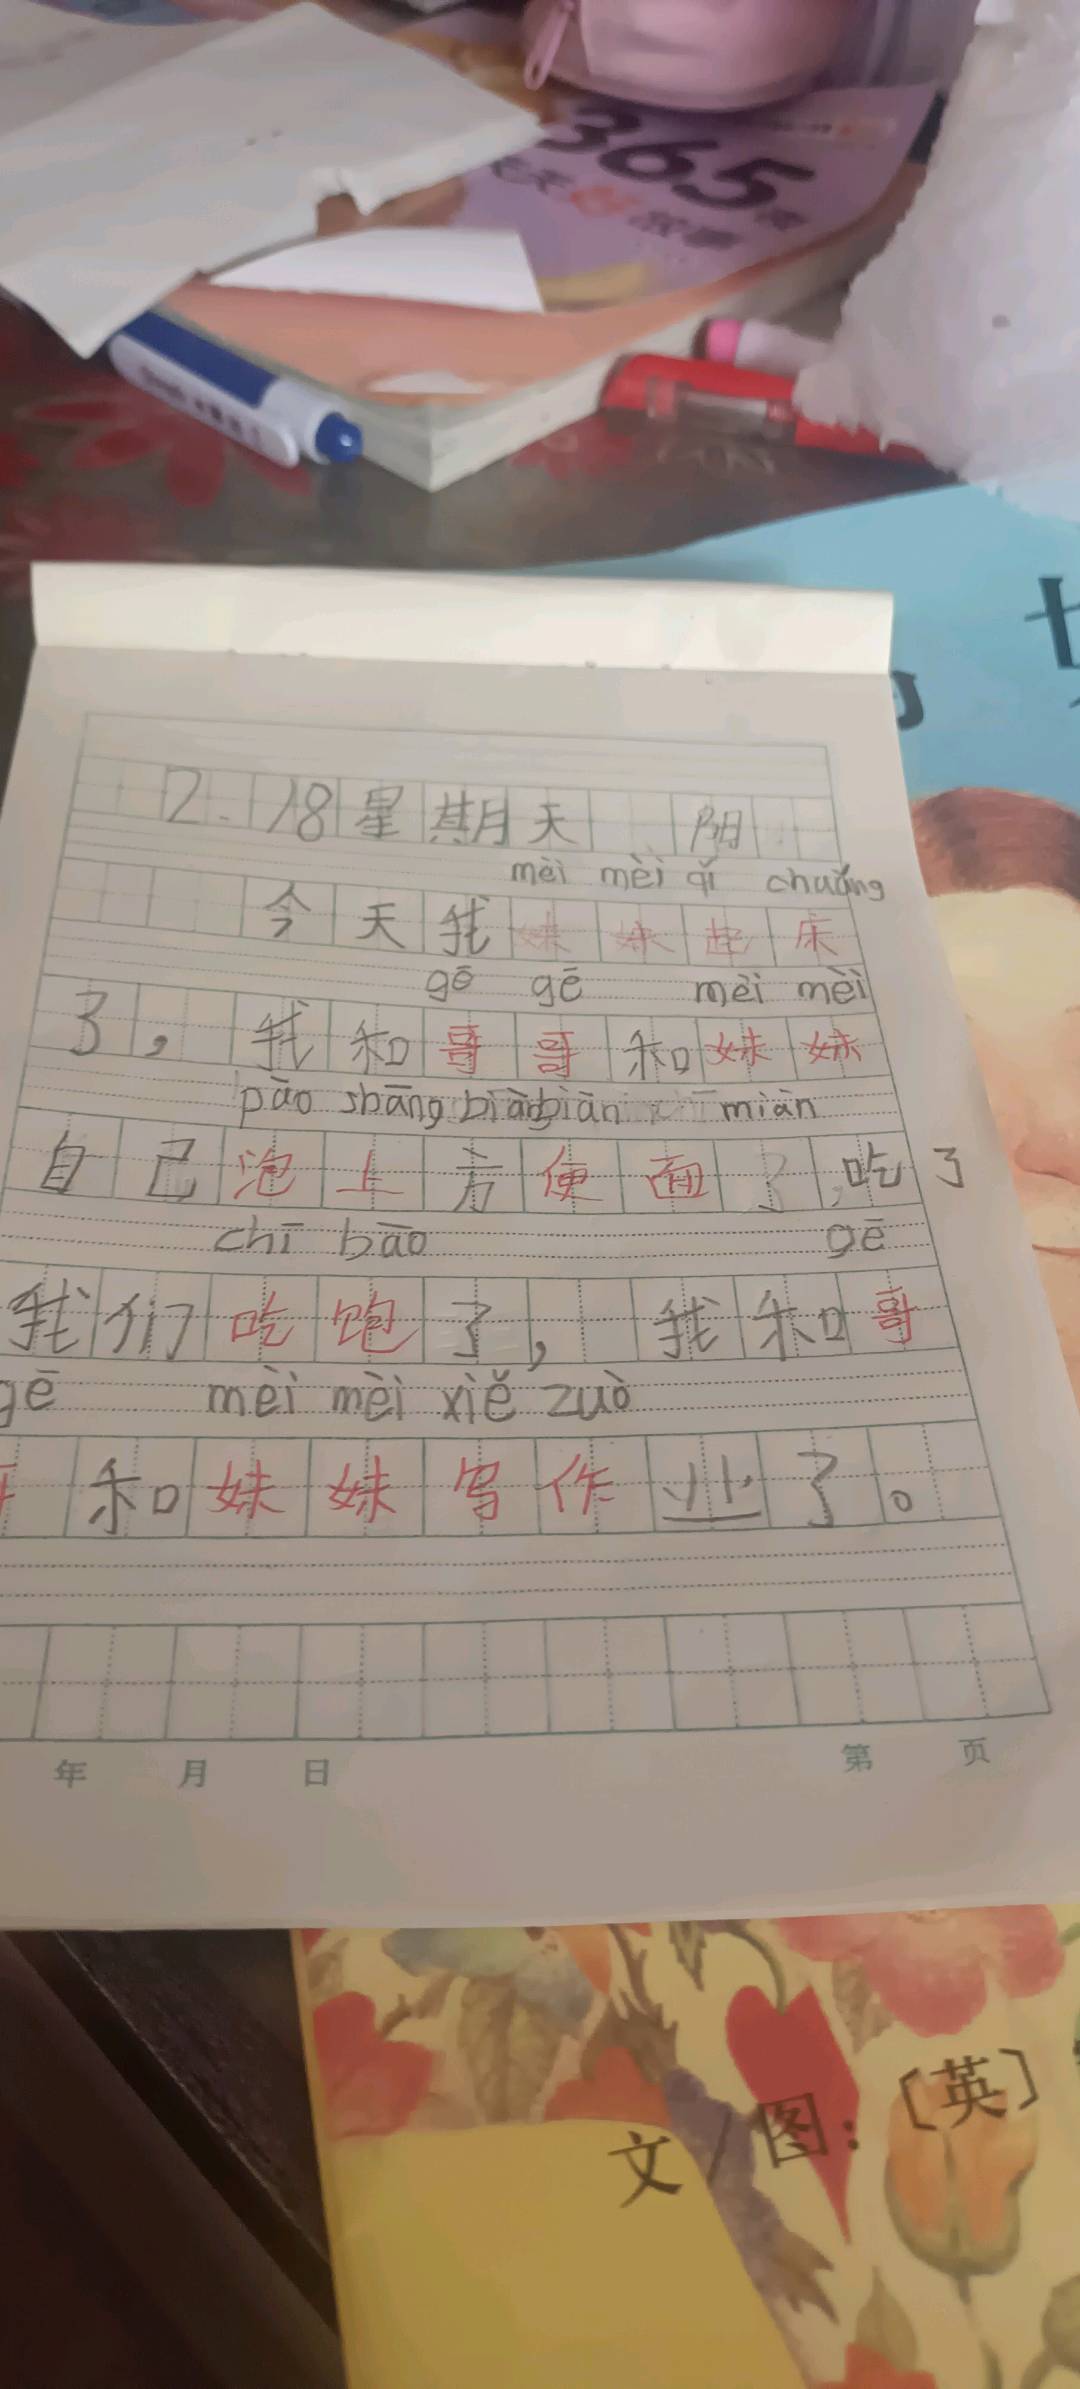 365夜
2.18星期天 阴
mèi mèi qǐ chuǎng
今天我妹妹起床
gē gē mèi mèi
了，我和哥哥和妹妹
pāo shāng biàn miàn
自己泡上方便面了，吃了
chī bāo gē
我们吃饱了，我和哥
gē mèi mèi xiě zuò
哥和妹妹写作业了。
年 月 日 第 页
文/图：〔英〕